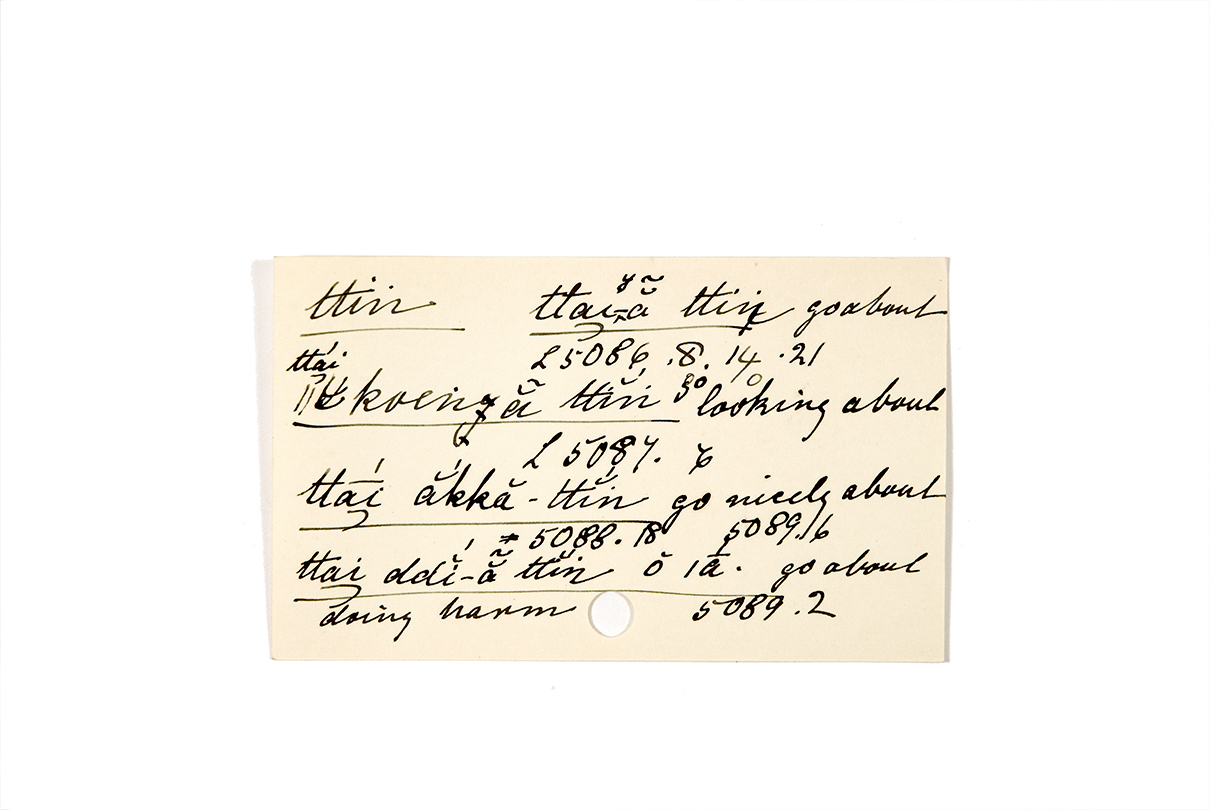 ttĭn ttai-ã̆ ttĭn go about
L 5086 .8. 14 .21
ttái
koeng ã̆ ttĭ́n so looking about
L 5087. 6
ttā́i ắkkă-ttĭ́n go nicely about
5088.18 5089.16
ttai ddĭ́-ã̆ ttĭ́n ŏ |ā. go about
doing harm 5089.2